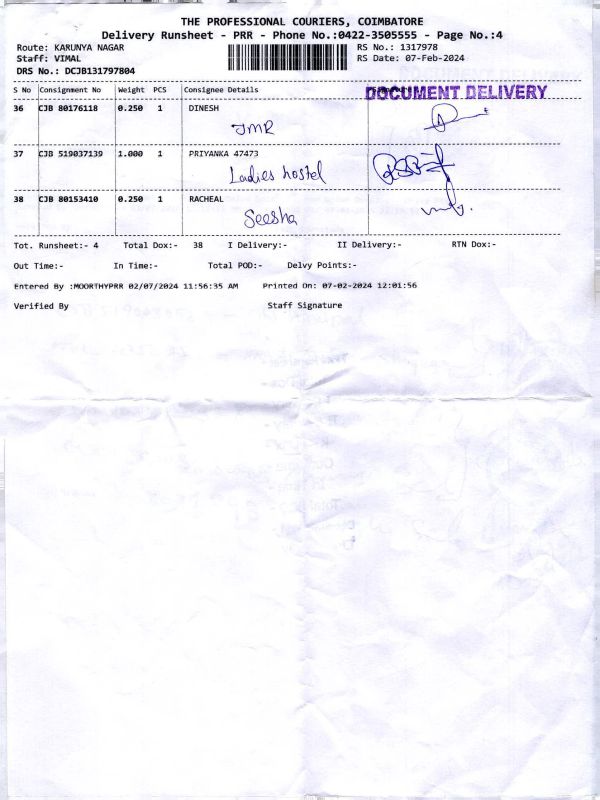 THE PROFESSIONAL COURIERS, COIMBATORE
Delivery Runsheet - PRR - Phone No.:0422-3505555 - Page No.:4
Route: KARUNYA NAGAR RS No.: 1317978
Staff: VIMAL RS Date: 07-Feb-2024
DRS No.: DCJB131797804
S No Consignment No Weight PCS Consignee Details DOCUMENT DELIVERY
36 CJB 80176118 0.250 1 DINESH
JMR
37 CJB 519037139 1.000 1 PRIYANKA 47473
Ladies hostel
38 CJB 80153410 0.250 1 RACHEAL
Seesha
Tot. Runsheet:- 4 Total Dox:- 38 I Delivery:- II Delivery:- RTN Dox:-
Out Time:- In Time:- Total POD:- Delvy Points:-
Entered By :MOORTHYPRR 02/07/2024 11:56:35 AM Printed On: 07-02-2024 12:01:56
Verified By Staff Signature